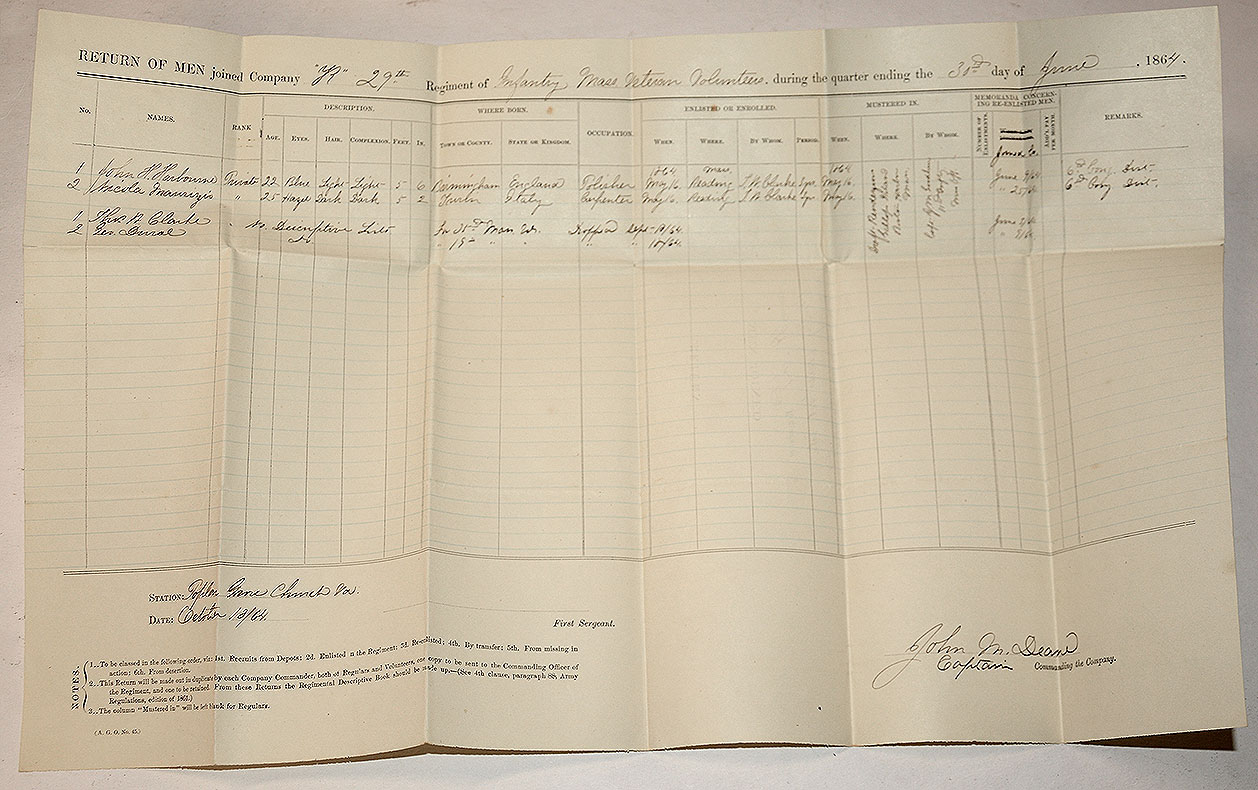 RETURN OF MEN joined Company "K" 29th Regiment of Infantry Mass Veteran Volunteers. during the quarter ending the 30th day of June, 1864.
No. NAMES. RANK DESCRIPTION. WHERE BORN. OCCUPATION. ENLISTED OR ENROLLED. MUSTERED IN. MEMORANDA CONCERNING RE-ENLISTED MEN. REMARKS.
AGE. EYES. HAIR. COMPLEXION. FEET. IN. TOWN OR COUNTY. STATE OR KINGDOM. WHEN. WHERE. BY WHOM. PERIOD. WHEN. WHERE. BY WHOM. NUMBER OF ENLISTMENTS. Joined Co. ADD'L PAY PER MONTH.
1864 Mass. 1864
1 John H. Harbourne Private 22 Blue Light Light 5 6 Birmingham England Polisher May 16 Reading S. W. Clarke 3 yrs May 16 June 9/64 6th Cong. Dist.
2 Nicola " 25 Hazel Dark Dark 5 2 Turin Italy Carpenter May 16. Reading S W Clarke 3 yrs May 16 " 25/64 6th Cong Dist.
1 Thos B. Clarke " No Descriptive List In 30th Dropped Sept 10/64 June 2/64
2 Geo. Duval Do " " " 10/64 " 2/64
STATION: Poplar Grove Church Va.
DATE: October 18/64.
First Sergeant.
John M. Deane
Captain Commanding the Company.
NOTES.
1..To be classed in the following order, viz: 1st. Recruits from Depots; 2d. Enlisted in the Regiment; 3d. Re-enlisted; 4th. By transfer; 5th. From missing in
action; 6th. From desertion.
2..This Return will be made out in duplicate by each Company Commander, both of Regulars and Volunteers, one copy to be sent to the Commanding Officer of
the Regiment, and one to be retained. From these Returns the Regimental Descriptive Book should be made up.—(See 4th clause, paragraph 88, Army
Regulations, edition of 1861.)
3..The column "Mustered in" will be left blank for Regulars.
(A. G. O. No. 45.)